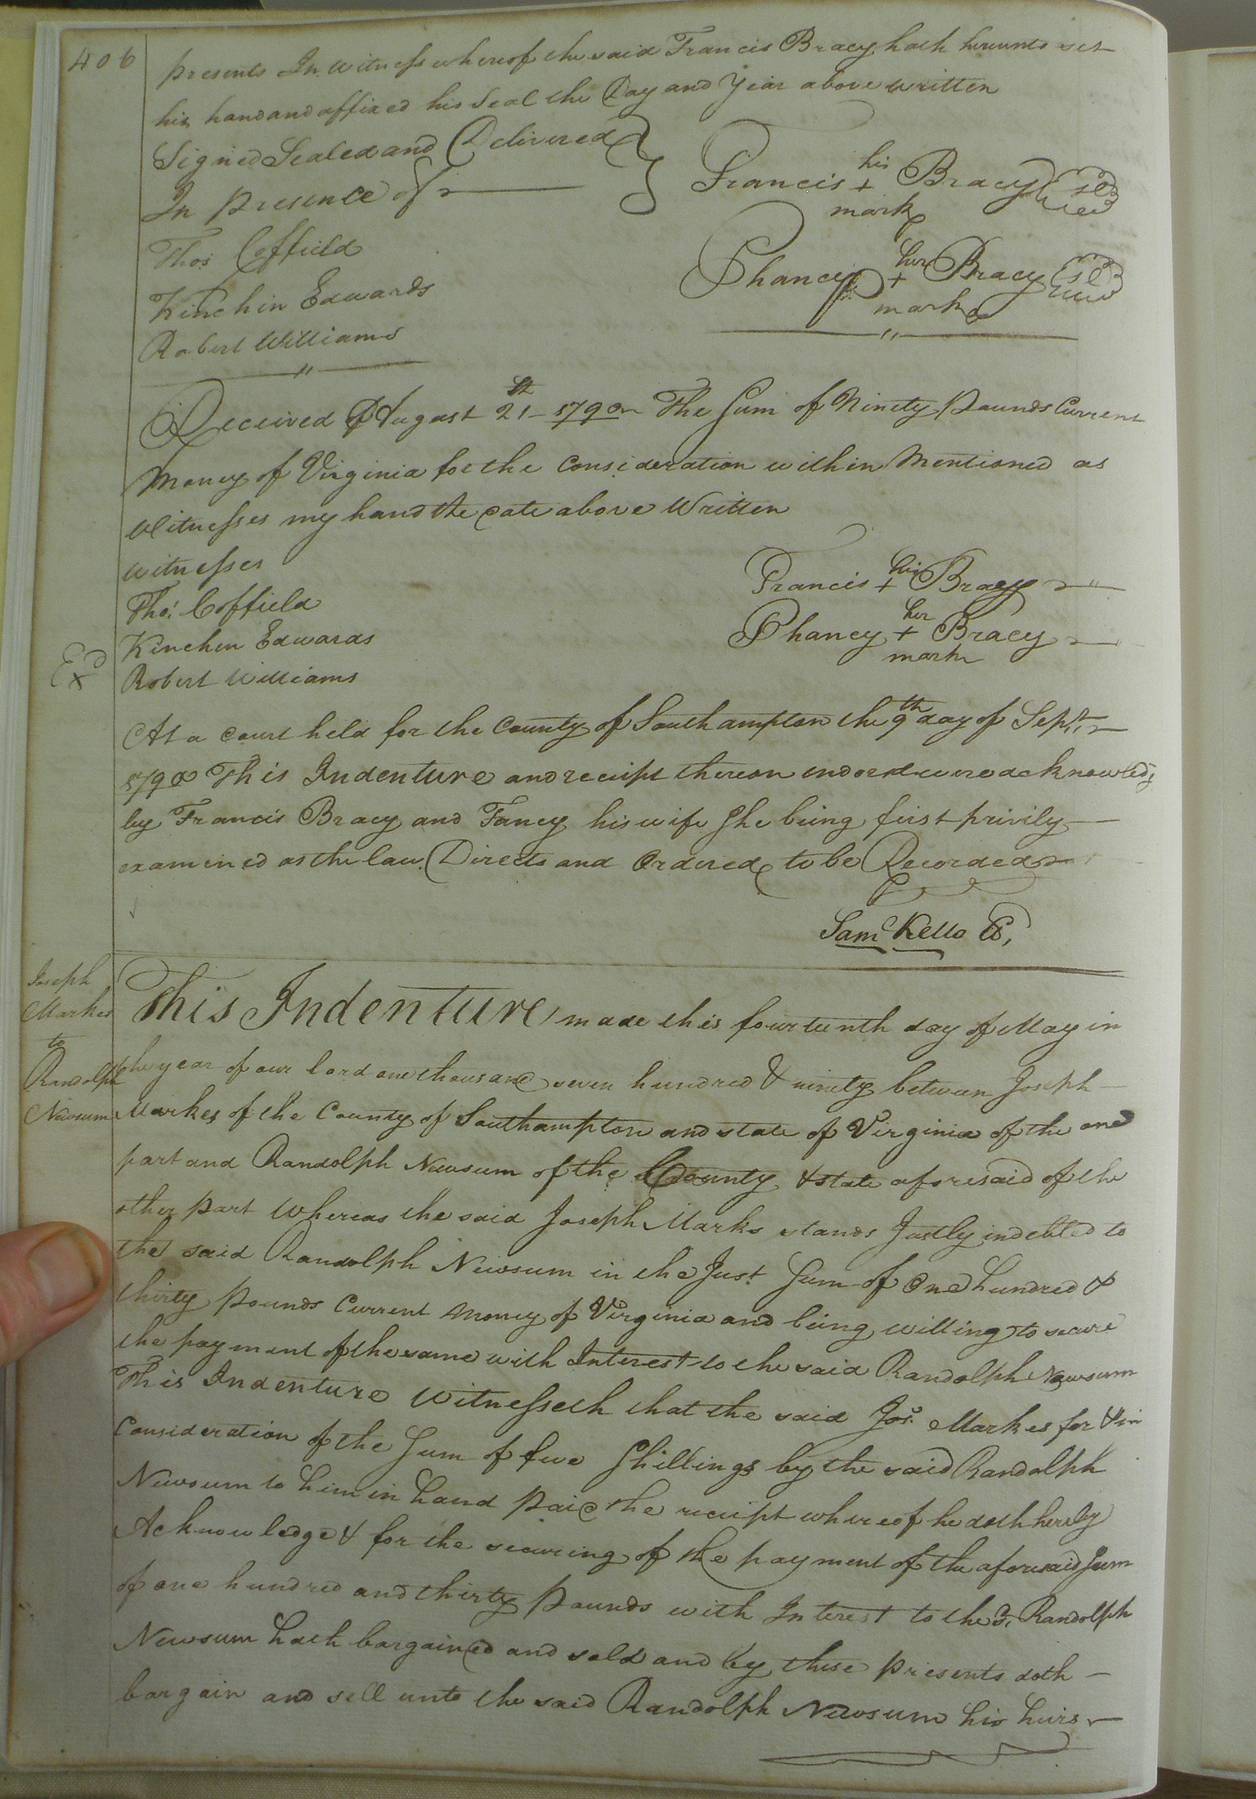 406
presents In witness whereof the said Francis Bracy hath hereunto set
his hand and affixed his Seal the Day and Year above written
Signed Sealed and Delivered
In Presence of
Francis his + mark Bracy
Phancy her + mark Bracy
Thos Coffield
Kinchin Edwards
Robert Williams
Received August 21st 1790 The Sum of Ninety Pounds Current
Money of Virginia for the Consideration within Mentioned as
Witnesses my hand the date above Written
Witnesses
Tho: Coffield
Kinchen Edwards
Robert Williams
Francis his + Bracy
Phancy her + mark Bracy
Exd
At a Court held for the County of Southampton the 9th day of Sept.
1790 This Indenture and receipt thereon indorsd were acknowledg
by Francis Bracy and Fancy his wife She being first privily
examined as the law Directs and Ordered to be Recorded
Saml Kello
Joseph
Markes
to
Randolph
Newsum
This Indenture made this fourteenth day of May in
the year of our lord one thousand seven hundred & ninety between Joseph
Markes of the County of Southampton and state of Virginia of the one
part and Randolph Newsum of the County & state aforesaid of the
other Part Whereas the said Joseph Marks stands Justly indebted to
the said Randolph Newsum in the Just Sum of One hundred &
thirty Pounds Current Money of Virginia and being willing to secure
the payment of the same with Interest to the said Randolph Newsum
This Indenture Witnesseth that the said Jos. Markes for & in
Consideration of the Sum of five Shillings by the said Randolph
Newsum to him in hand Paid the receipt whereof he doth hereby
Acknowledge & for the securing of the payment of the aforesaid Sum
of one hundred and thirty Pounds with Interest to the sd. Randolph
Newsum hath bargained and sold and by these Presents doth
bargain and sell unto the said Randolph Newsum his heirs